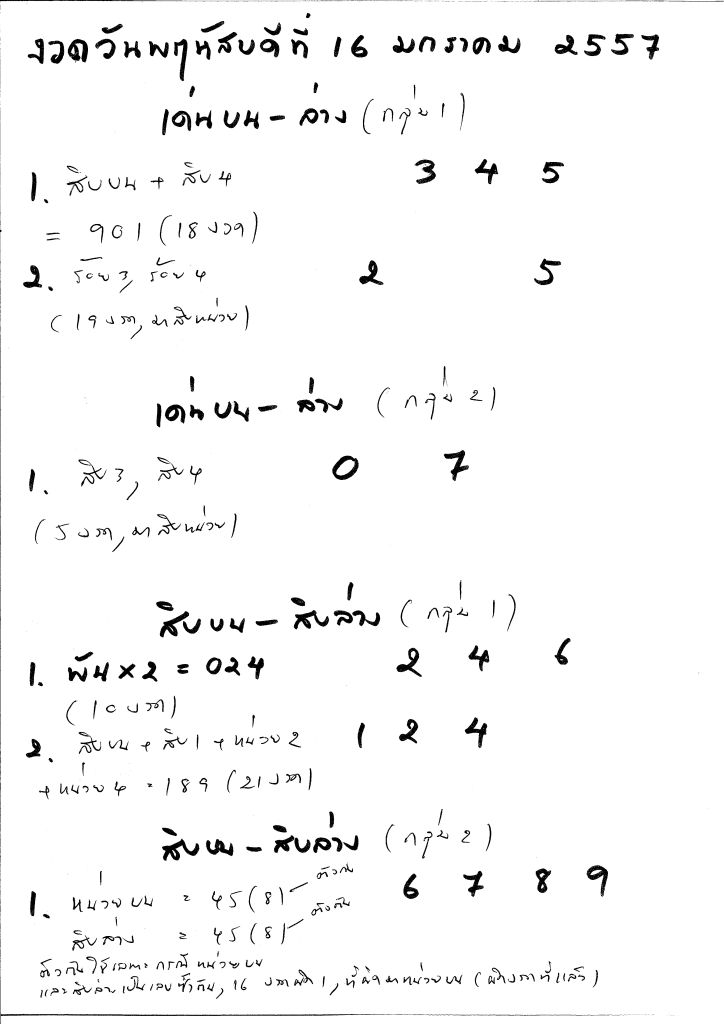 งวดวันพฤหัสบดีที่ 16 มกราคม 2557
เด่นบน - ล่าง (กลุ่ม 1)
1. สิบบน + สิบ 4 3 4 5
= 901 (18 งวด)
2. ร้อย 3, ร้อย 4 2 5
(19 งวด, มาสิบหน่วย)
เด่นบน - ล่าง (กลุ่ม 2)
1. สิบ 3, สิบ 4 0 7
(5 งวด, มาสิบหน่วย)
สิบบน - สิบล่าง (กลุ่ม 1)
1. พัน x 2 = 024 2 4 6
(10 งวด)
2. สิบบน + สิบ 1 + หน่วย 2 1 2 4
+ หน่วย 4 = 189 (21 งวด)
สิบบน - สิบล่าง (กลุ่ม 2)
1. หน่วยบน = 45 (8) ตัวกัน 6 7 8 9
สิบล่าง = 45 (8) ตัวกัน
ตัวกันใช้เฉพาะกรณีหน่วยบน
และสิบล่างเป็นเลขซ้ำกัน, 16 งวดผิด 1, ที่ผิดมาหน่วยบน (ผิดงวดที่แล้ว)